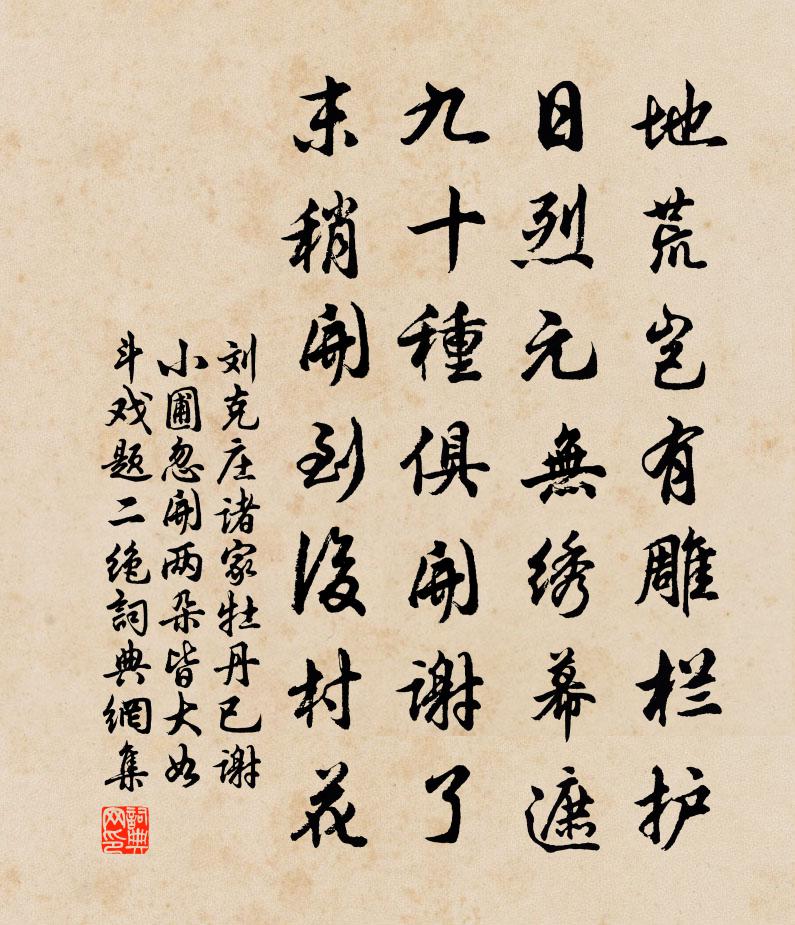 地荒岂有雕栏护
日烈元無绣幕遮
九十種俱開謝了
末稍開到後村花
刘克庄诸家牡丹已谢
小圃忽開两朵皆大如
斗戏题二绝詞典網集
詞典
网印